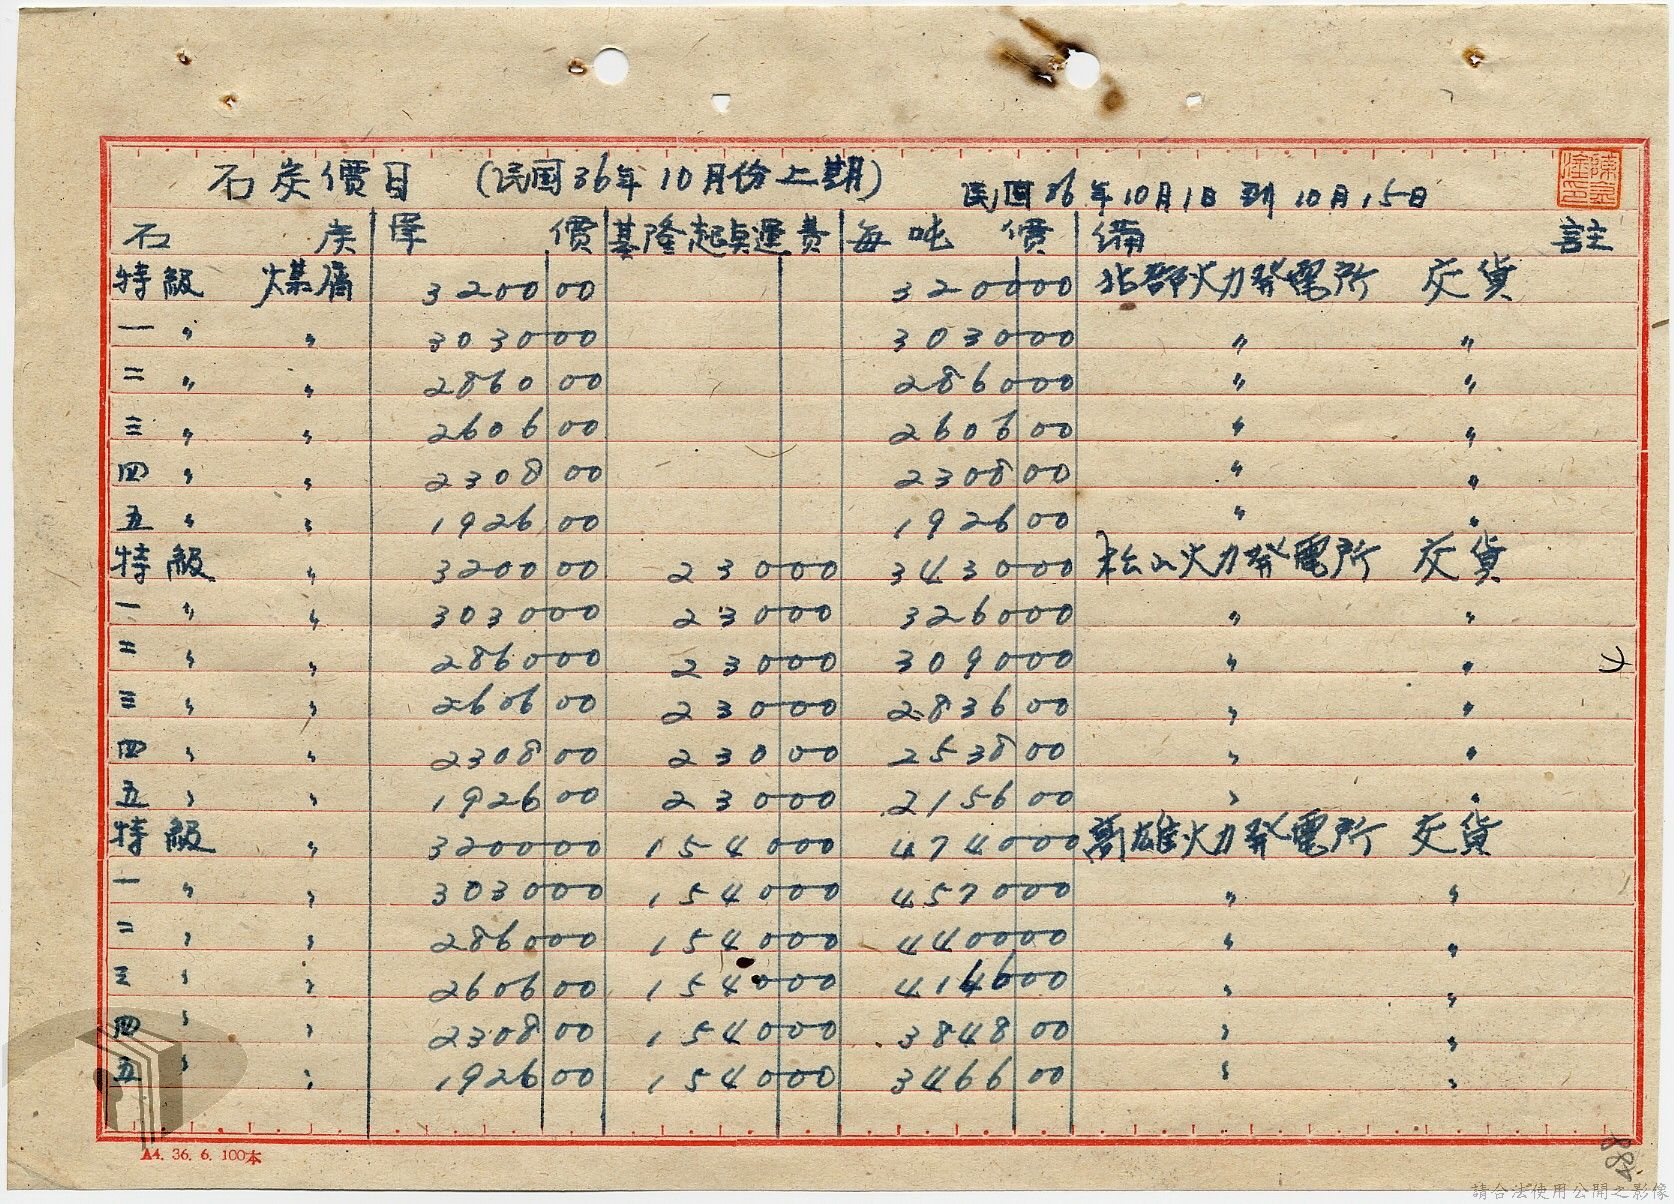 石炭價目 (民国36年10月份上期) 民国36年10月1日到10月15日
石炭 單價 基隆起点運費 每吨價 備註
特級 煤屑 3200 00 3200 00 北部火力発電所 交貨
一 〃 〃 3030 00 3030 00 〃 〃
二 〃 〃 2860 00 2860 00 〃 〃
三 〃 〃 2606 00 2606 00 〃 〃
四 〃 〃 2308 00 2308 00 〃 〃
五 〃 〃 1926 00 1926 00 〃 〃
特級 〃 3200 00 230 00 3430 00 松山火力発電所 交貨
一 〃 〃 3030 00 230 00 3260 00 〃 〃
二 〃 〃 2860 00 230 00 3090 00 〃 〃
三 〃 〃 2606 00 230 00 2836 00 〃 〃
四 〃 〃 2308 00 230 00 2538 00 〃 〃
五 〃 〃 1926 00 230 00 2156 00 〃 〃
特級 〃 3200 00 1540 00 4740 00 高雄火力発電所 交貨
一 〃 〃 3030 00 1540 00 4570 00 〃 〃
二 〃 〃 2860 00 1540 00 4400 00 〃 〃
三 〃 〃 2606 00 1540 00 4146 00 〃 〃
四 〃 〃 2308 00 1540 00 3848 00 〃 〃
五 〃 〃 1926 00 1540 00 3466 00 〃 〃
A4. 36. 6. 100本
請合法使用公開之影像